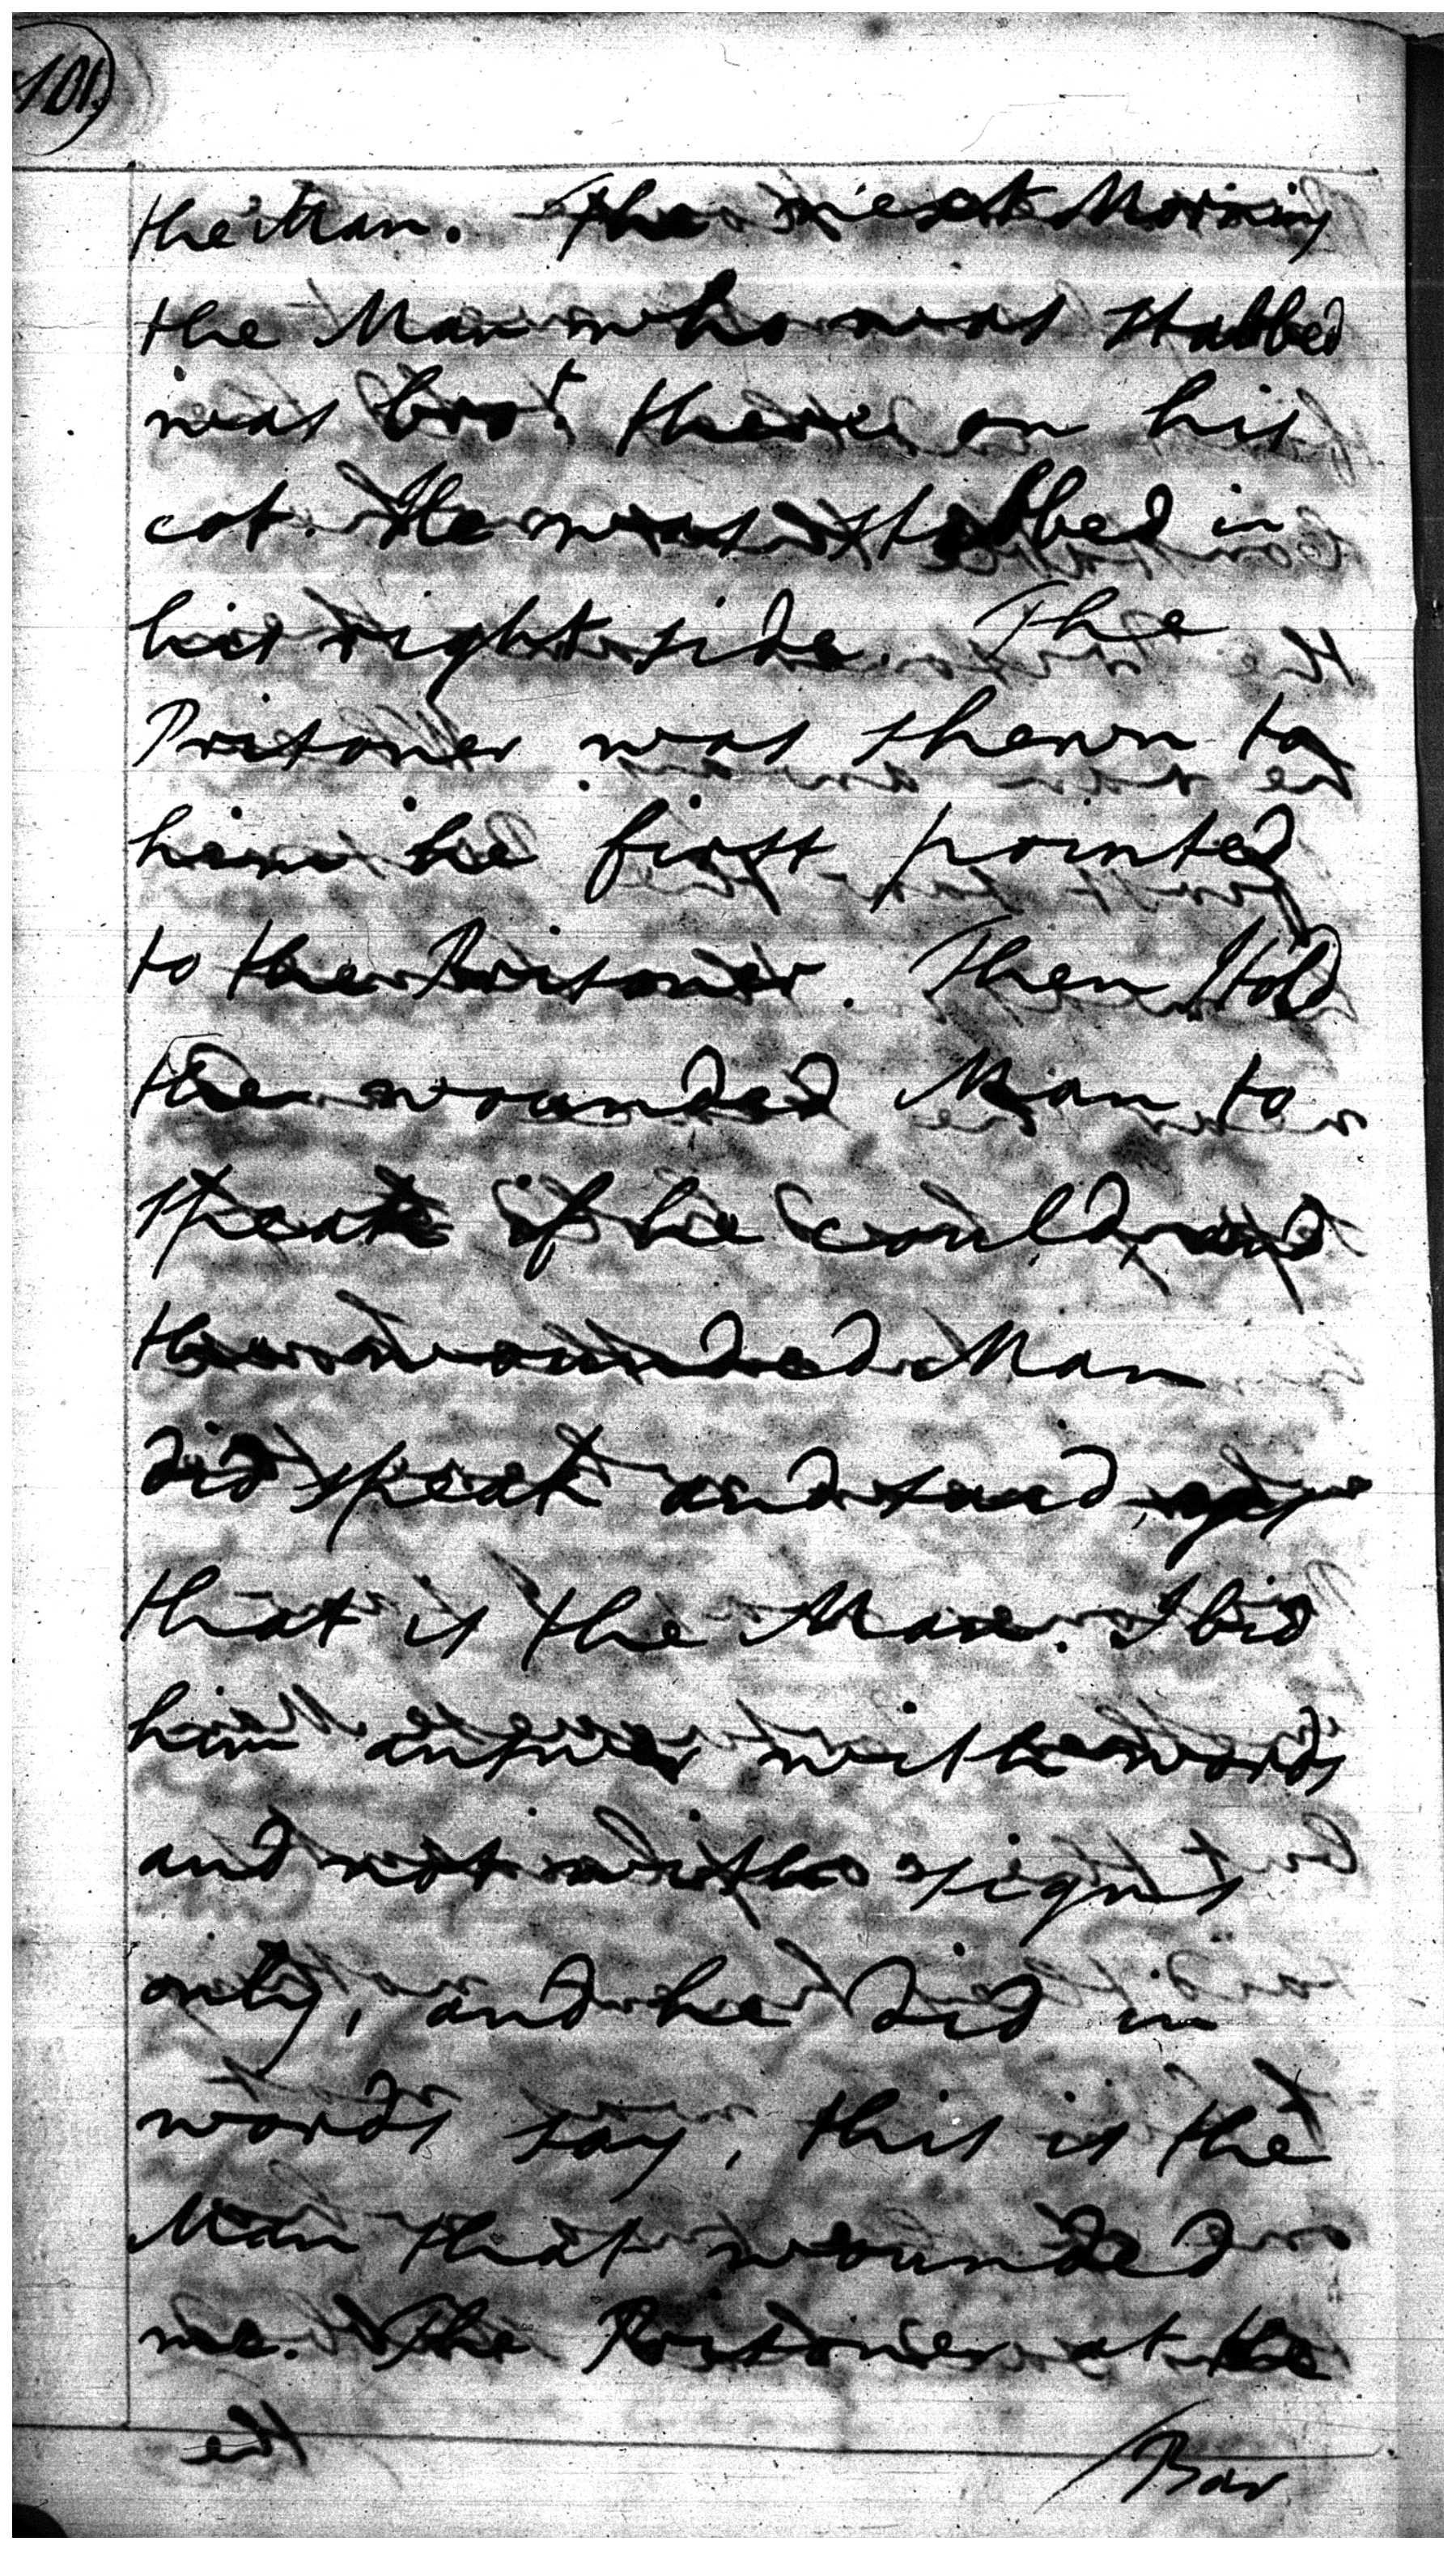 101.
the Man. The next Morning
the Man who was stabbed
was bro.t there on his
cot. He was stabbed in
his right side. The
Prisoner was shewn to
him he first pointed
to the Prisoner. Then I told
the wounded Man to
speak if he could, and
the wounded Man
did speak and said yes
that is the Man. I bid
him answer with words
and not with signs
only, and he did in
words say, this is the
Man that wounded
me. The Prisoner at the
Bar